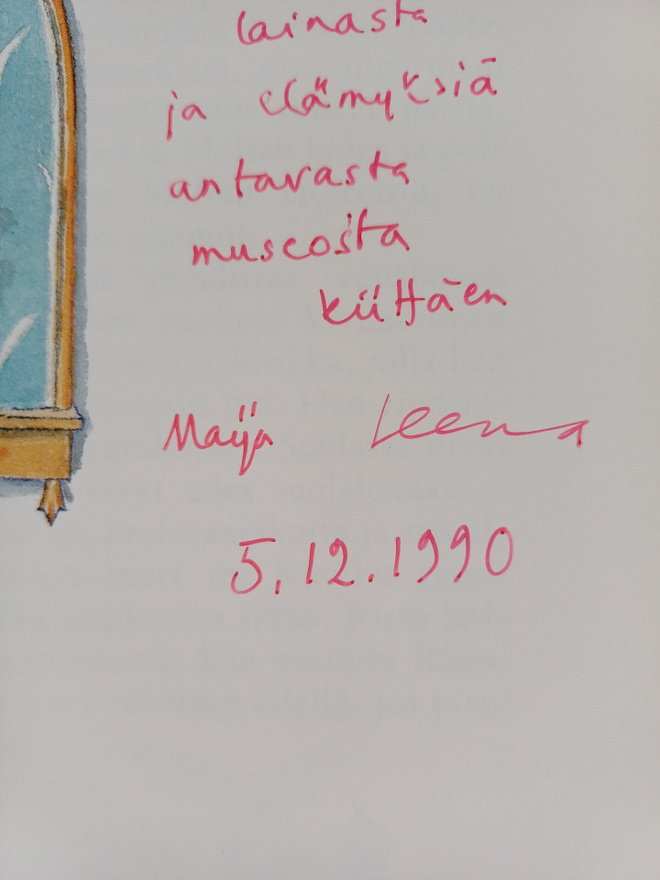 lainasta
ja elämyksiä
antavasta
museosta
kiittäen
Maija Leena
5.12.1990